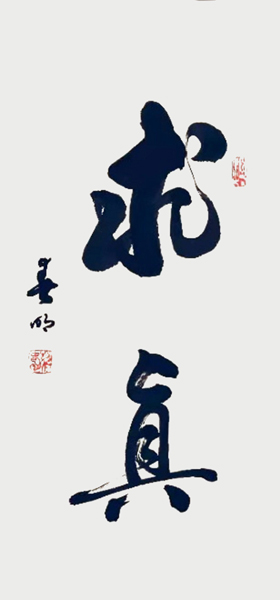 求真
春明